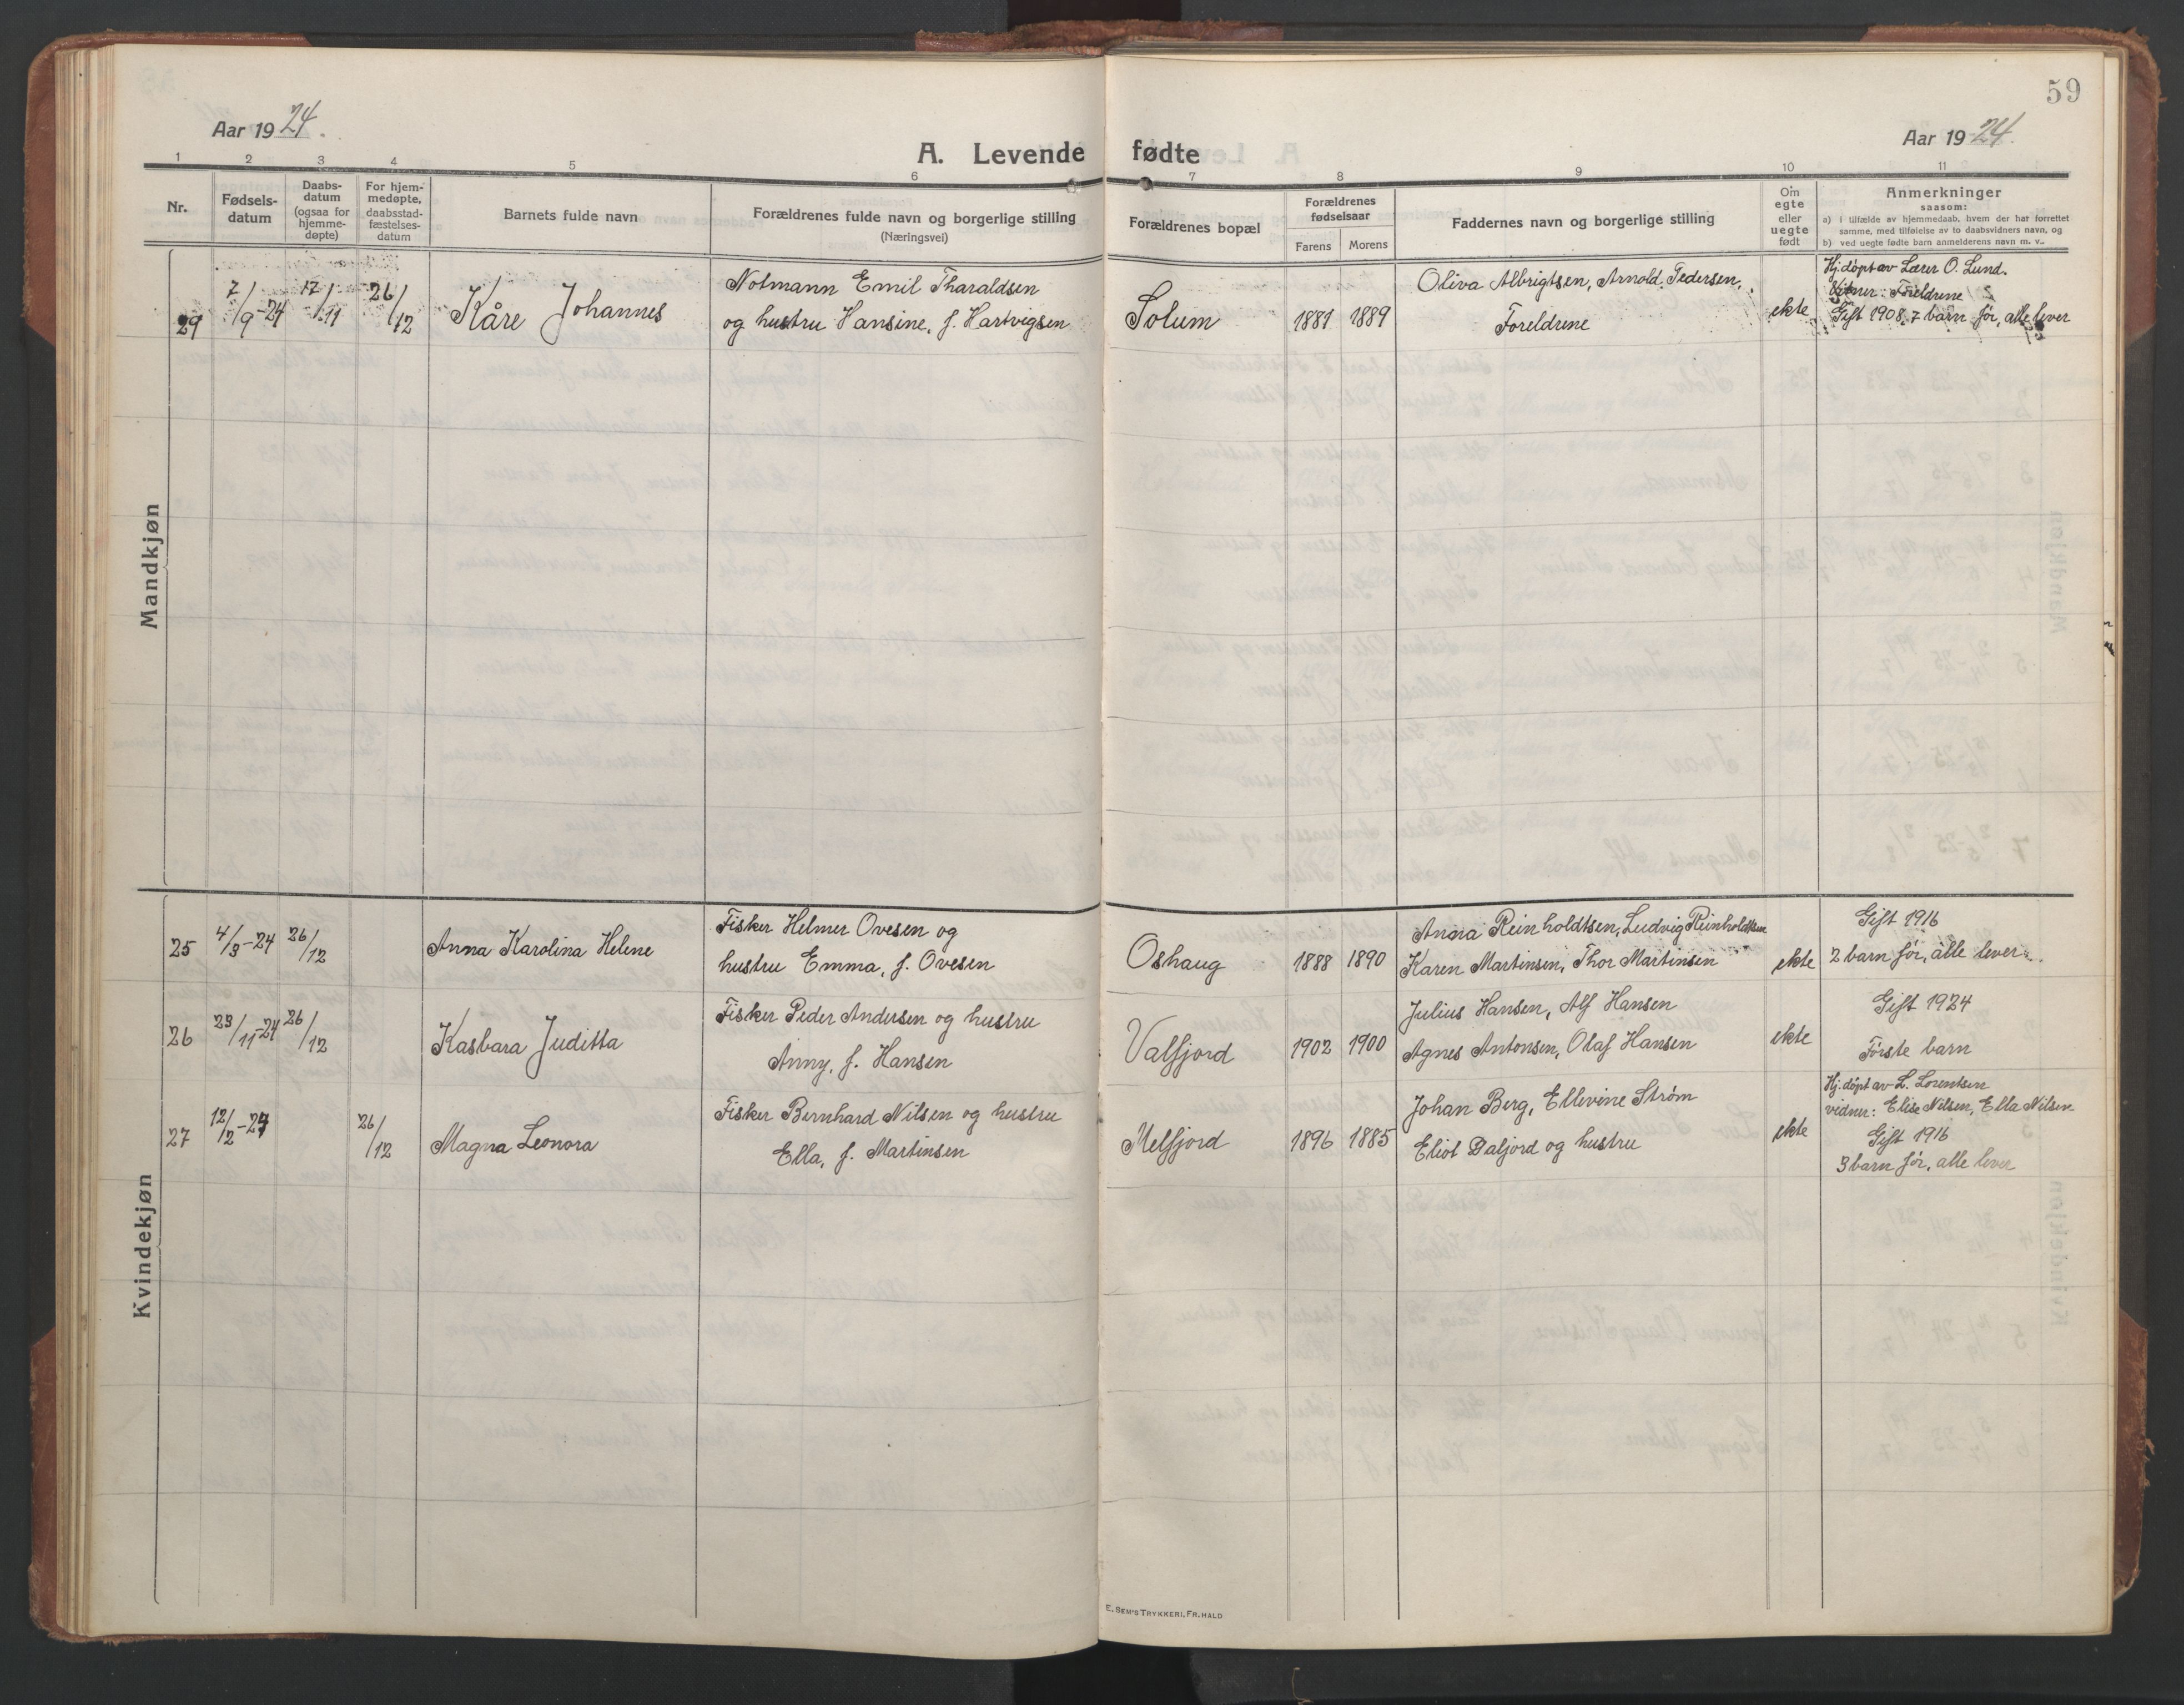 59
Aar 1924.
Aar 1924.
A. Levende fødte
1 2 3 4 5 6 7 8 9 10 11
Nr.
Fødsels-
datum
Daabs-
datum
(ogsaa for
hjemme-
døpte)
For hjem-
medøpte,
daabsstad-
fæstelses-
datum
Barnets fulde navn
Forældrenes fulde navn og borgerlige stilling
(Næringsvei)
Forældrenes bopæl
Forældrenes
fødselsaar
Farens Morens
Faddernes navn og borgerlige stilling
Om
egte
eller
uegte
født
Anmerkninger
saasom:
a) i tilfælde av hjemmedaab, hvem der har forrettet
samme, med tilføielse av to daabsvidners navn, og
b) ved uegte fødte barn anmelderens navn m. v.
Mandkjøn
29 7/9-24 17/11 26/12 Kåre Johannes
Notmann Emil Tharaldsen
og hustru Hansine, f. Hartvigsen
Solum 1881 1889
Oliva Albrigtsen, Arnold Pedersen,
Foreldrene
ekte
Hj.døpt av Lærer O. Lund.
Vitner: Foreldrene
Gift 1908. 7 barn før, alle lever
Kvindekjøn
25 4/3-24 26/12 Anna Karolina Helene
Fisker Helmer Ovesen og
hustru Emma, f. Ovesen
Oshaug 1888 1890
Anna Reinholdtsen, Ludvig Reinholdtsen
Karen Martinsen, Thor Martinsen
ekte
Gift 1916
2 barn før, alle lever.
26 23/11-24 26/12 Kasbara Juditta
Fisker Peder Andersen og hustru
Anny, f. Hansen
Valfjord 1902 1900
Julius Hansen, Alf Hansen
Agnes Antonsen, Olaf Hansen
ekte
Gift 1924
Første barn
27 12/2-24 26/12 Magna Leonora
Fisker Bernhard Nilsen og hustru
Ella, f. Martinsen
Melfjord 1896 1885
Johan Berg, Ellevine Strøm
Eliot Daljord og hustru
ekte
Hj.døpt av L. Lorentsen
vidner: Elise Nilsen, Ella Nilsen
Gift 1916
3 barn før, alle lever
E. SEM'S TRYKKERI, FR.HALD